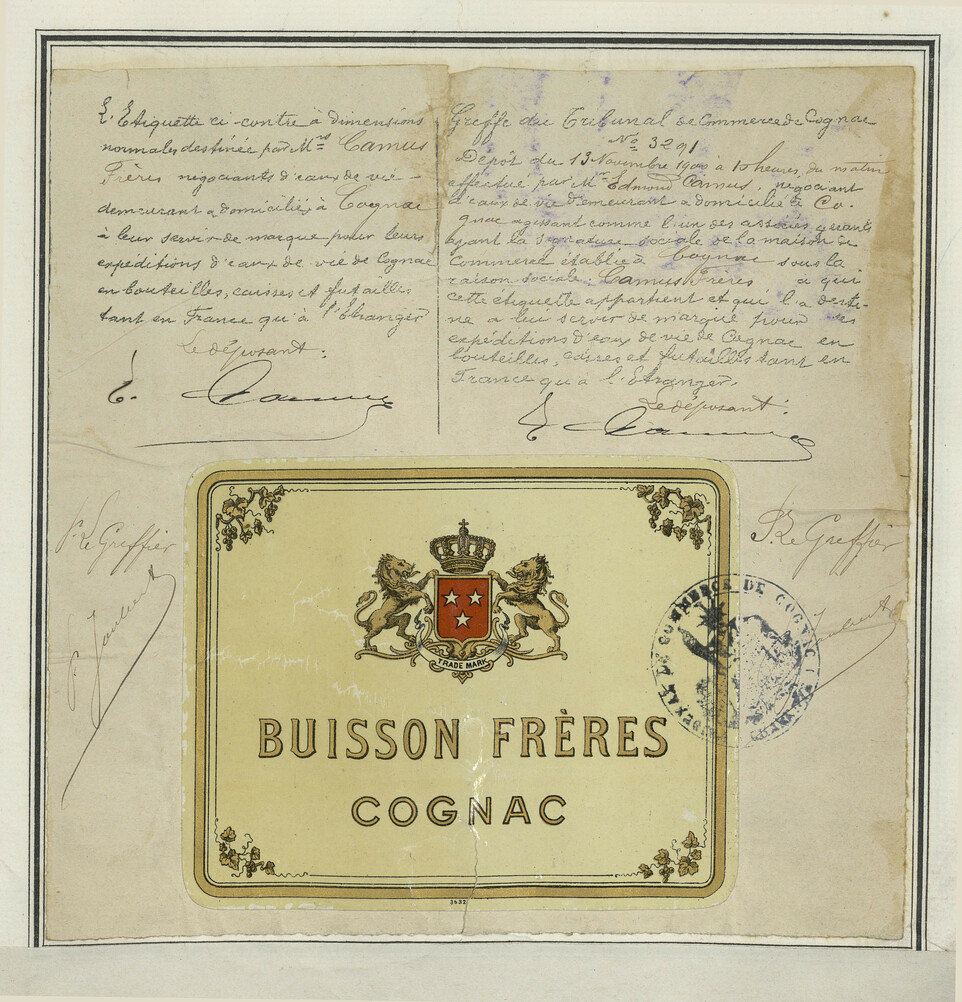 L'Etiquette ci-contre à dimensions
normales destinée par Mrs Camus
Frères negociants d'eaux de vie
demeurant a domiciliés à Cognac
à leur servir de marque pour leurs
expéditions d'eaux de vie de Cognac
en bouteilles, caisses et futailles
tant en France qu'à l'Etranger
Le déposant:
E. Camus
Greffe du Tribunal de Commerce de Cognac
No 3291
Dépôt du 13 Novembre 1900 à 10 heures du matin
effectué par Mr Edmond Camus, negociant
d'eaux de vie demeurant a domicilié à Co-
gnac agissant comme l'un des associés gerants
ayant la signature sociale de la maison de
Commerce établie à Cognac sous la
raison sociale: Camus Frères a qui
cette étiquette appartient et qui l'a desti-
né a lui servir de marque pour ses
expéditions d'eaux de vie de Cognac en
bouteilles, caisses et futailles tant en
France qu'à l'Etranger.
Le déposant:
E. Camus
Pr Le Greffier
Pr Le Greffier
TRIBUNAL DE COMMERCE DE COGNAC
TRADE MARK
BUISSON FRÈRES
COGNAC
3632